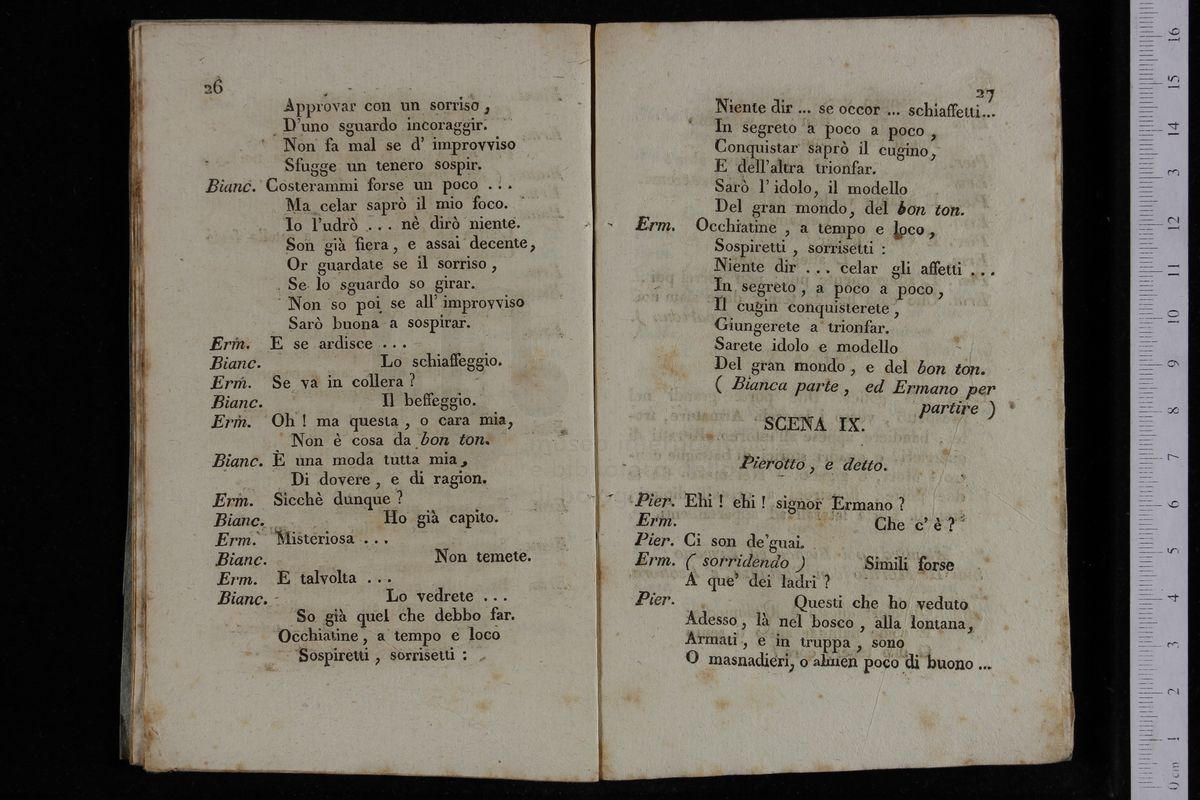 26
Approvar con un sorriso,
D'uno sguardo incoraggir.
Non fa mal se d' improvviso
Sfugge un tenero sospir.
Bianc. Costerammi forse un poco ...
Ma celar saprò il mio foco.
Io l'udrò ... nè dirò niente.
Son già fiera, e assai decente,
Or guardate se il sorriso,
Se lo sguardo so girar.
Non so poi se all' improvviso
Sarò buona a sospirar.
Erm. E se ardisce ...
Bianc. Lo schiaffeggio.
Erm. Se va in collera ?
Bianc. Il beffeggio.
Erm. Oh ! ma questa, o cara mia,
Non è cosa da bon ton.
Bianc. È una moda tutta mia,
Di dovere, e di ragion.
Erm. Sicchè dunque ?
Bianc. Ho già capito.
Erm. Misteriosa ...
Bianc. Non temete.
Erm. E talvolta ...
Bianc. Lo vedrete ...
So già quel che debbo far.
Occhiatine, a tempo e loco
Sospiretti, sorrisetti :
27
Niente dir ... se occor ... schiaffetti...
In segreto a poco a poco,
Conquistar saprò il cugino,
E dell'altra trionfar.
Sarò l' idolo, il modello
Del gran mondo, del bon ton.
Erm. Occhiatine, a tempo e loco,
Sospiretti, sorrisetti :
Niente dir ... celar gli affetti ...
In segreto, a poco a poco,
Il cugin conquisterete,
Giungerete a trionfar.
Sarete idolo e modello
Del gran mondo, e del bon ton.
( Bianca parte, ed Ermano per
partire )
SCENA IX.
Pierotto, e detto.
Pier. Ehi ! ehi ! signor Ermano ?
Erm. Che c' è ?
Pier. Ci son de'guai.
Erm. ( sorridendo ) Simili forse
A que' dei ladri ?
Pier. Questi che ho veduto
Adesso, là nel bosco, alla lontana,
Armati, e in truppa, sono
O masnadieri, o almen poco di buono ...
0 cm 1 2 3 4 5 6 7 8 9 10 11 12 13 14 15 16